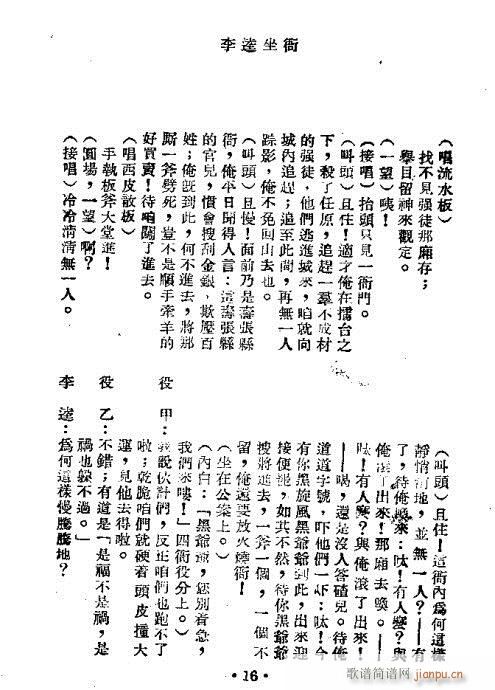 李逵坐衙
（唱流水板）
找不見强徒那廂存；
舉目留神來觀定。
（一望）咦！
（接唱）抬頭只見一衙門。
（叫頭）且住！適才俺在擂台之
下，殺了任原，追趕一羣不成材
的强徒，他們逃進城來，咱就向
城內追趕；追至此間，再無一人
踪影，俺不免回山去也。
（叫頭）且慢！面前乃是壽張縣
衙，俺平日聞得人言：這壽張縣
的官兒，慣會搜刮金銀，欺壓百
姓；俺旣到此，何不進去，將那
厮一斧劈死，豈不是順手牽羊的
好買賣！待咱闖了進去。
（唱西皮散板）
手執板斧大堂進！
（圓場，一望）啊？
（接唱）冷冷清清無一人。
（叫頭）且住！這衙內爲何這樣
靜悄悄地，並無一人？——有
了，待俺喚來：呔！有人麽？與
俺滾了出來！那廂去喚。——
呔！有人麽？與俺滾了出來！
——喝，還是沒人答碴兒。待俺
道道字號，吓他們一吓：呔！今
有你黑旋風黑爺爺到此，出來迎
接便罷，如其不然，待你黑爺爺
搜將進去，一斧一個，一個不
留，俺還要放火燒衙！
（坐在公案上。）
（內白：「黑爺爺，您别着急，
我們來嘍！」四衙役分上。）
役　甲：我說伙計們，反正咱們也跑不了
啦；乾脆咱們就硬着頭皮撞大
運，見他去得啦。
役　乙：不錯；有道是「是福不是禍，是
禍也躱不過。」
李　逵：爲何這樣慢騰騰地？
·16·
歌谱简谱网
jianpu.cn